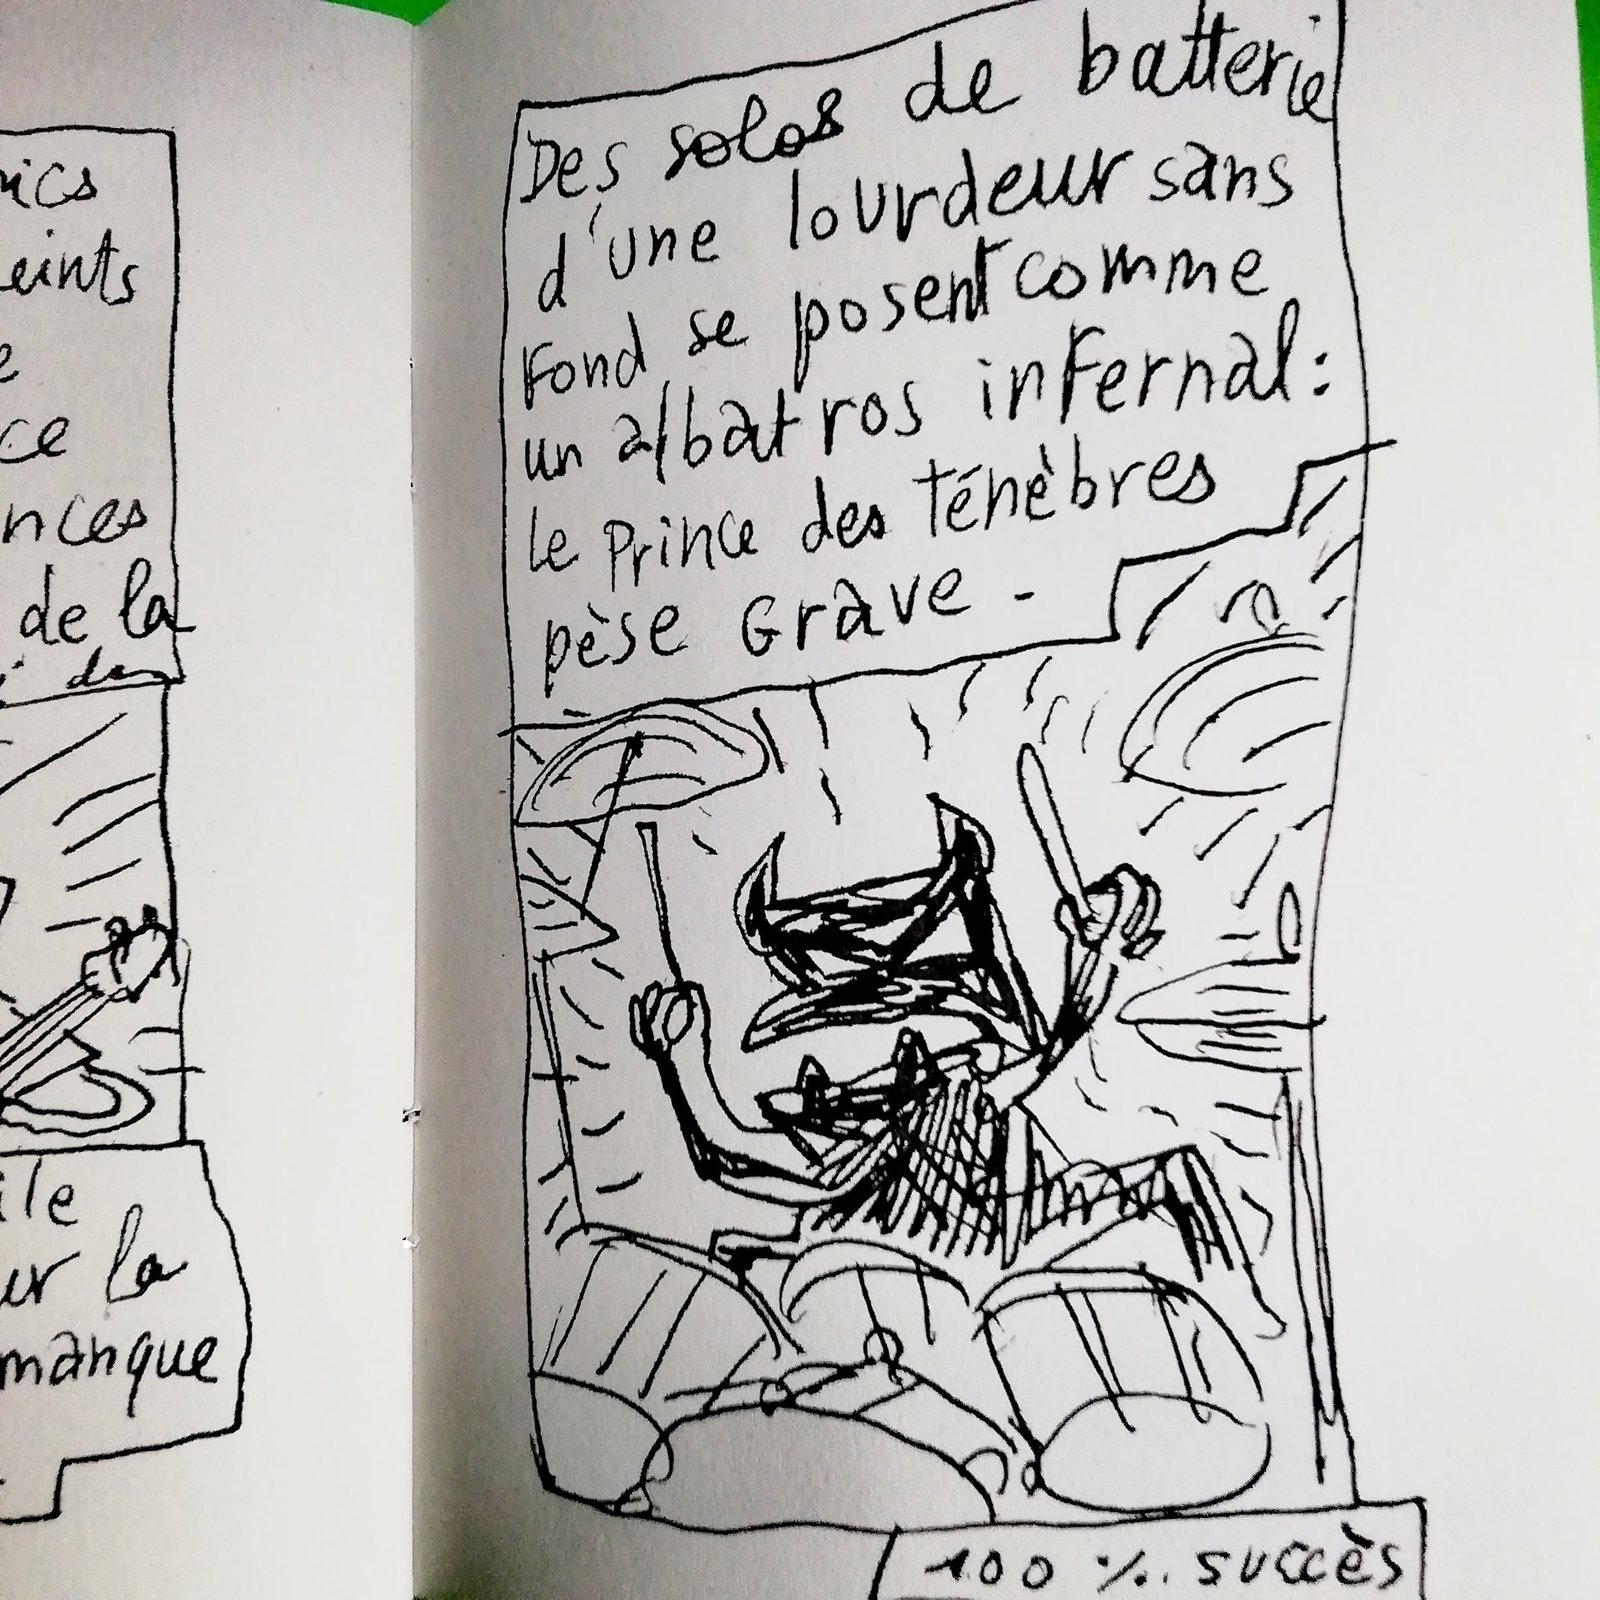 eints
ce
nces
de la
ur la
manque
Des solos de batterie
d'une lourdeur sans
fond se posent comme
un albatros infernal :
le Prince des Ténèbres
pèse Grave -
100 % succès